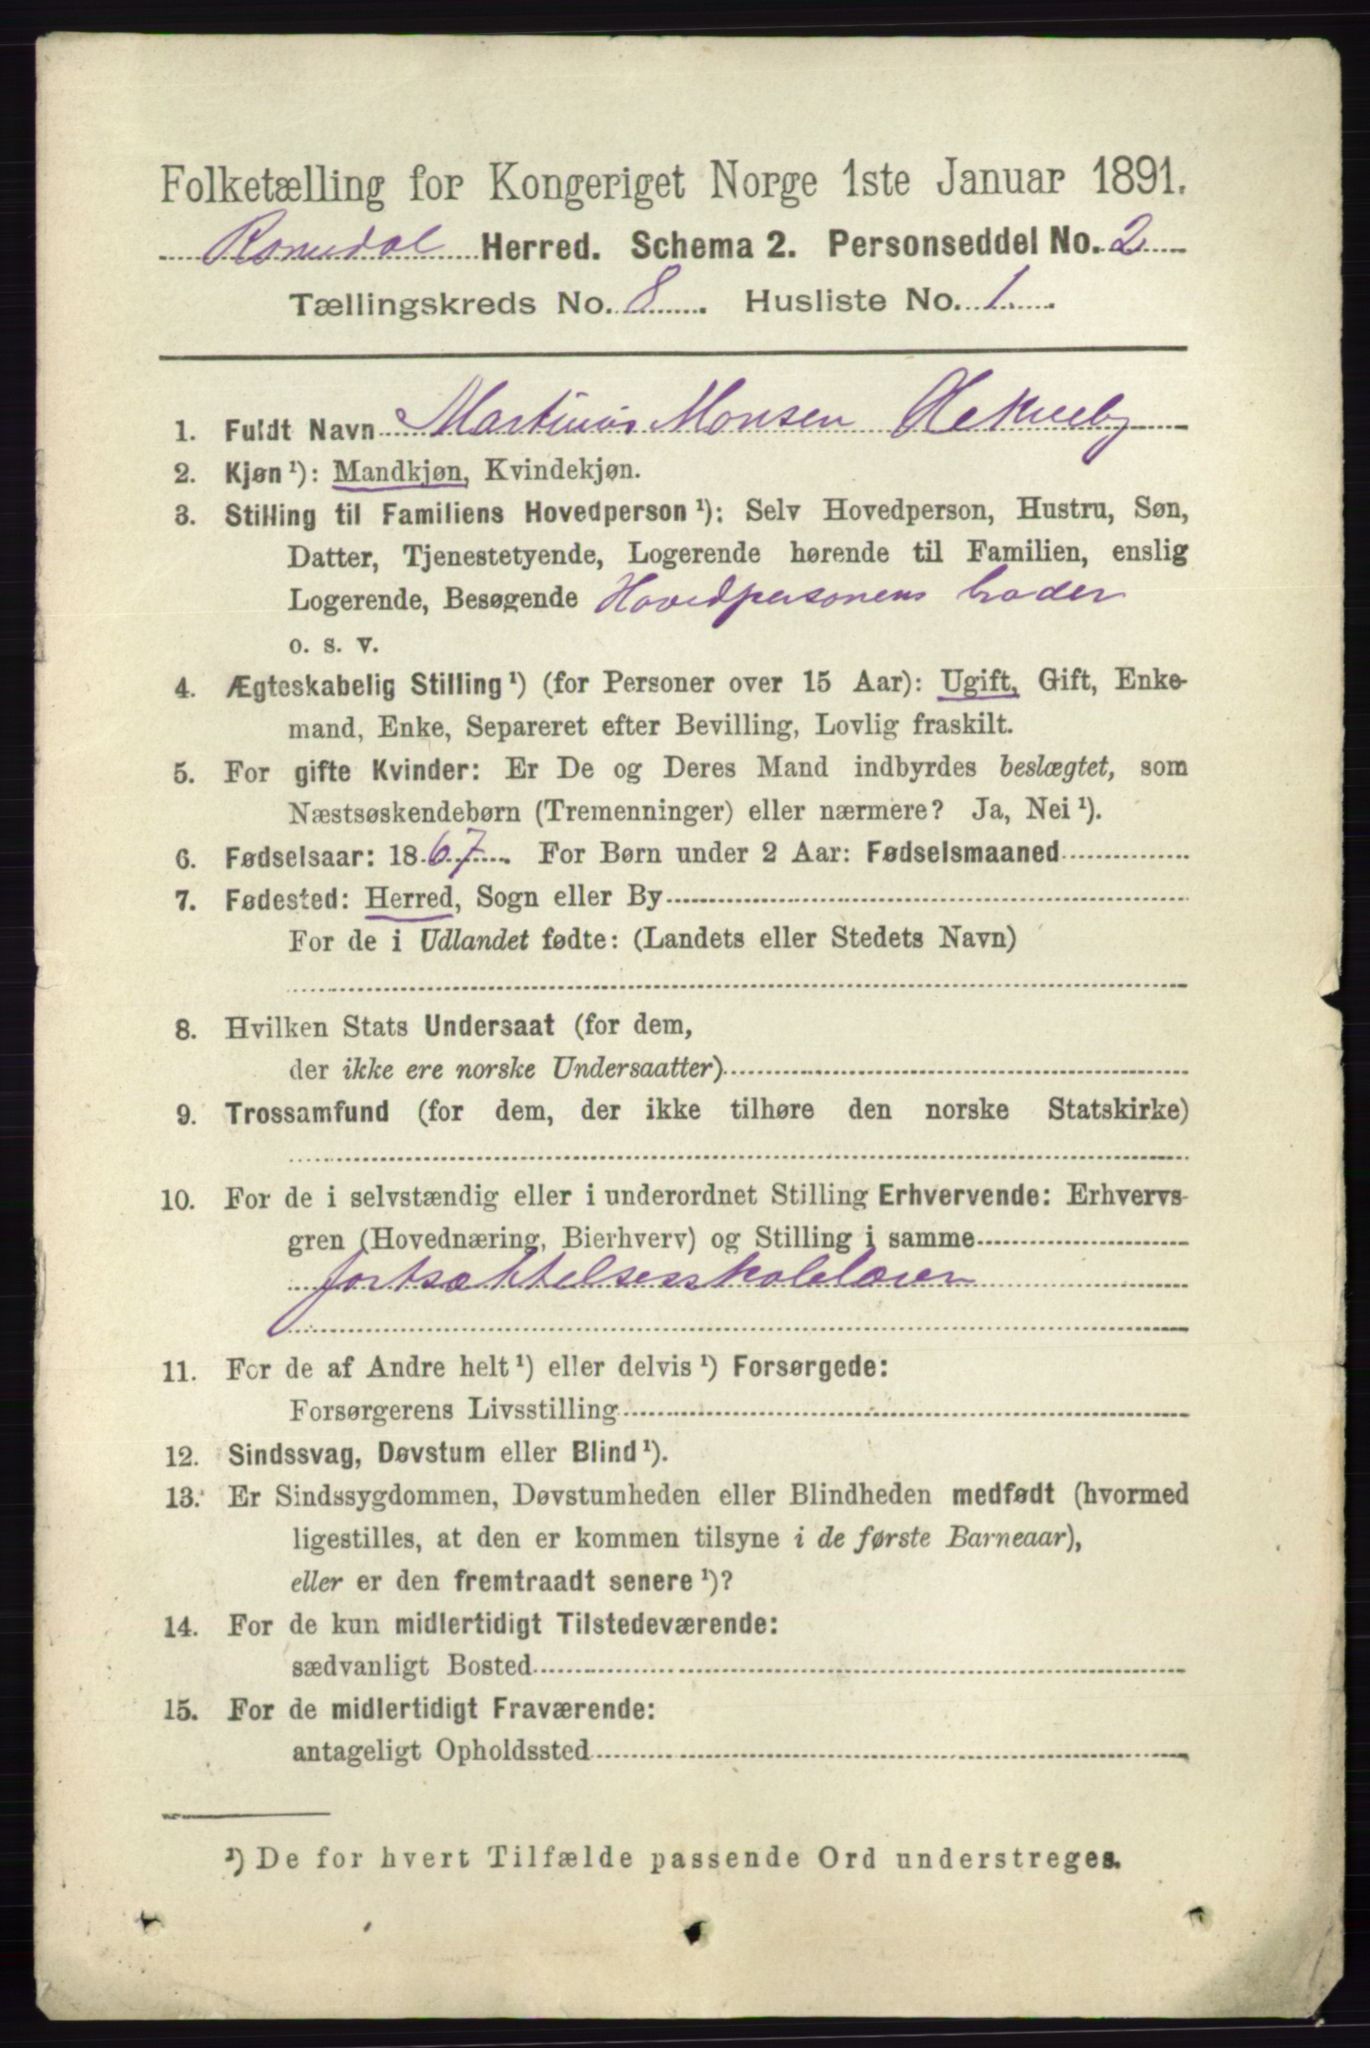 Folketælling for Kongeriget Norge 1ste Januar 1891.
Romedal Herred. Schema 2. Personseddel No. 2
Tællingskreds No. 8. Husliste No. 1.
1. Fuldt Navn Martinius Monsen
2. Kjøn ¹): Mandkjøn, Kvindekjøn.
3. Stilling til Familiens Hovedperson ¹): Selv Hovedperson, Hustru, Søn,
Datter, Tjenestetyende, Logerende hørende til Familien, enslig
Logerende, Besøgende Hovedpersonens broder
o. s. v.
4. Ægteskabelig Stilling ¹) (for Personer over 15 Aar): Ugift, Gift, Enke-
mand, Enke, Separeret efter Bevilling, Lovlig fraskilt.
5. For gifte Kvinder: Er De og Deres Mand indbyrdes beslægtet, som
Næstsøskendebørn (Tremenninger) eller nærmere? Ja, Nei ¹).
6. Fødselsaar: 1867. For Børn under 2 Aar: Fødselsmaaned
7. Fødested: Herred, Sogn eller By
For de i Udlandet fødte: (Landets eller Stedets Navn)
8. Hvilken Stats Undersaat (for dem,
der ikke ere norske Undersaatter)
9. Trossamfund (for dem, der ikke tilhøre den norske Statskirke)
10. For de i selvstændig eller i underordnet Stilling Erhvervende: Erhvervs-
gren (Hovednæring, Bierhverv) og Stilling i samme
fortsættelsesskolelærer
11. For de af Andre helt ¹) eller delvis ¹) Forsørgede:
Forsørgerens Livsstilling
12. Sindssvag, Døvstum eller Blind ¹).
13. Er Sindssygdommen, Døvstumheden eller Blindheden medfødt (hvormed
ligestilles, at den er kommen tilsyne i de første Barneaar),
eller er den fremtraadt senere ¹)?
14. For de kun midlertidigt Tilstedeværende:
sædvanligt Bosted
15. For de midlertidigt Fraværende:
antageligt Opholdssted
¹) De for hvert Tilfælde passende Ord understreges.